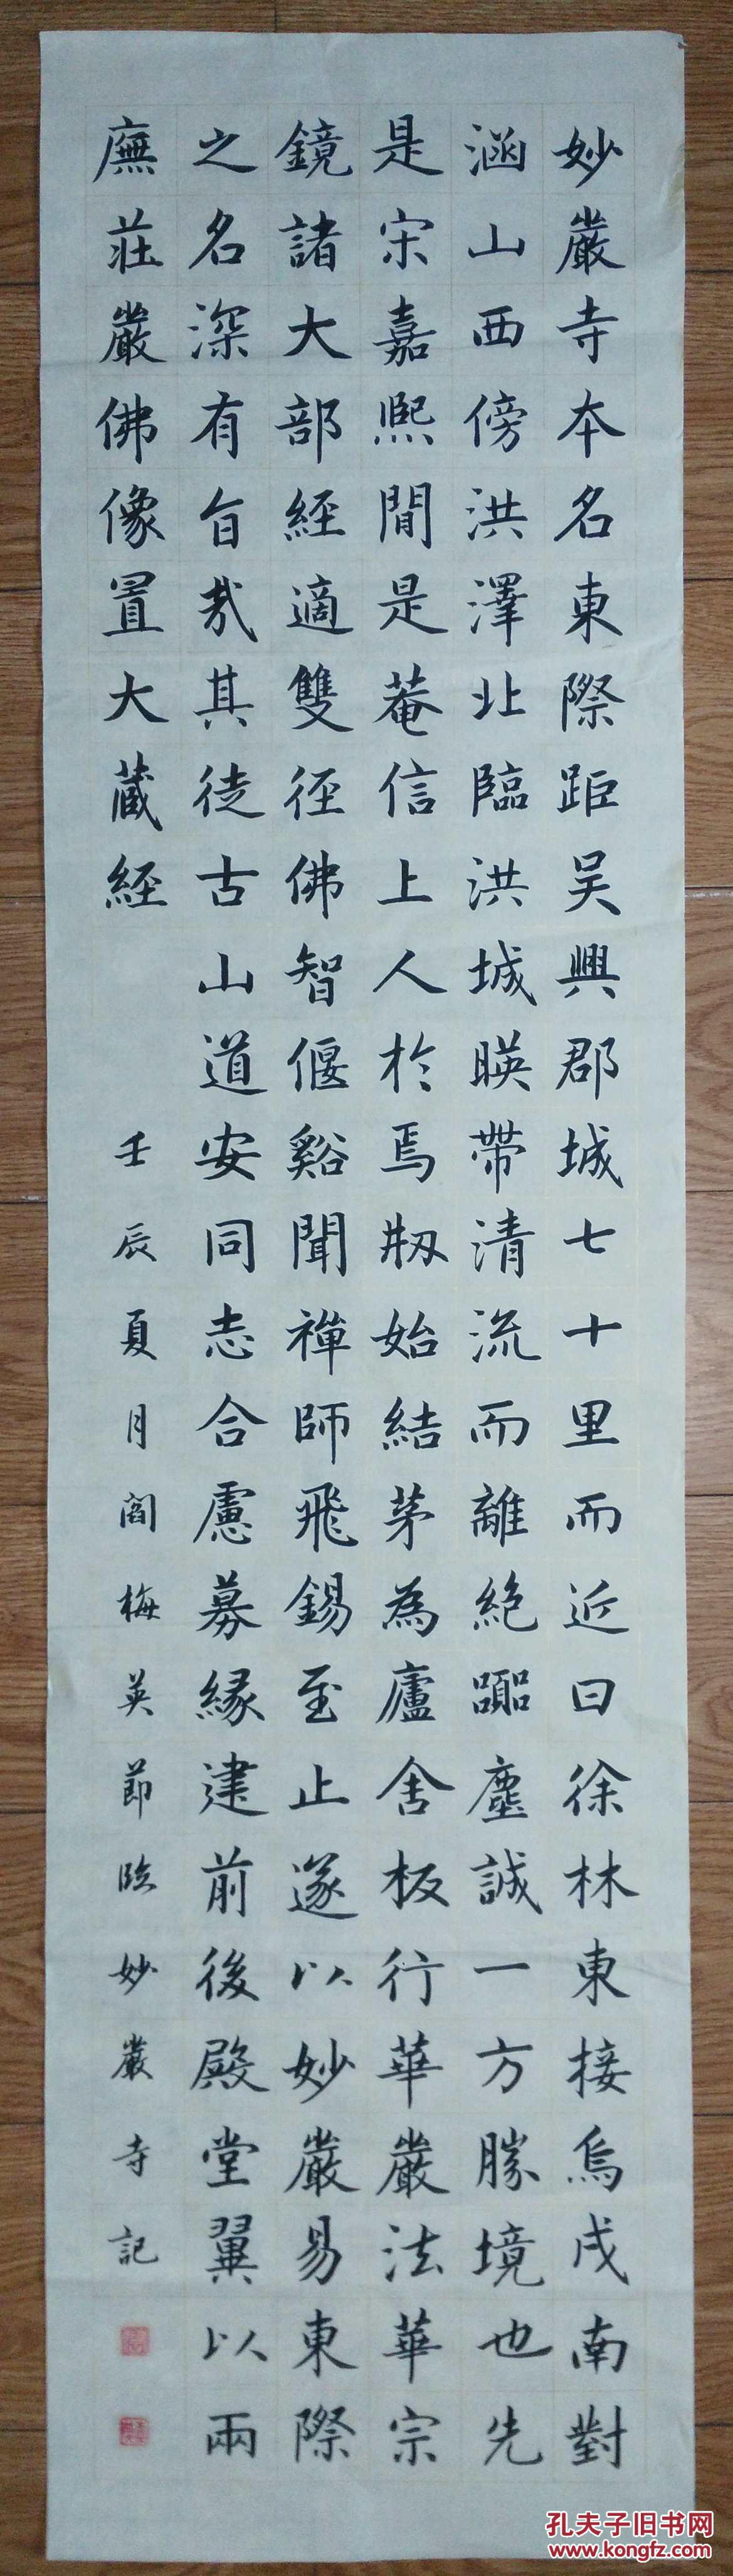 妙嚴寺本名東際距吴興郡城七十里而近曰徐林東接烏戍南對
涵山西傍洪澤北臨洪城暎帶清流而離絶躐塵誠一方勝境也先
是宋嘉熙間是菴信上人於焉刱始結茅為廬舍板行華嚴法華宗
鏡諸大部經適雙徑佛智偃谿聞禪師飛錫至止遂以妙嚴易東際
之名深有旨哉其徒古山道安同志合慮募緣建前後殿堂翼以兩
廡莊嚴佛像置大藏經
壬辰夏月閻梅英節臨妙嚴寺記
孔夫子旧书网
www.kongfz.com